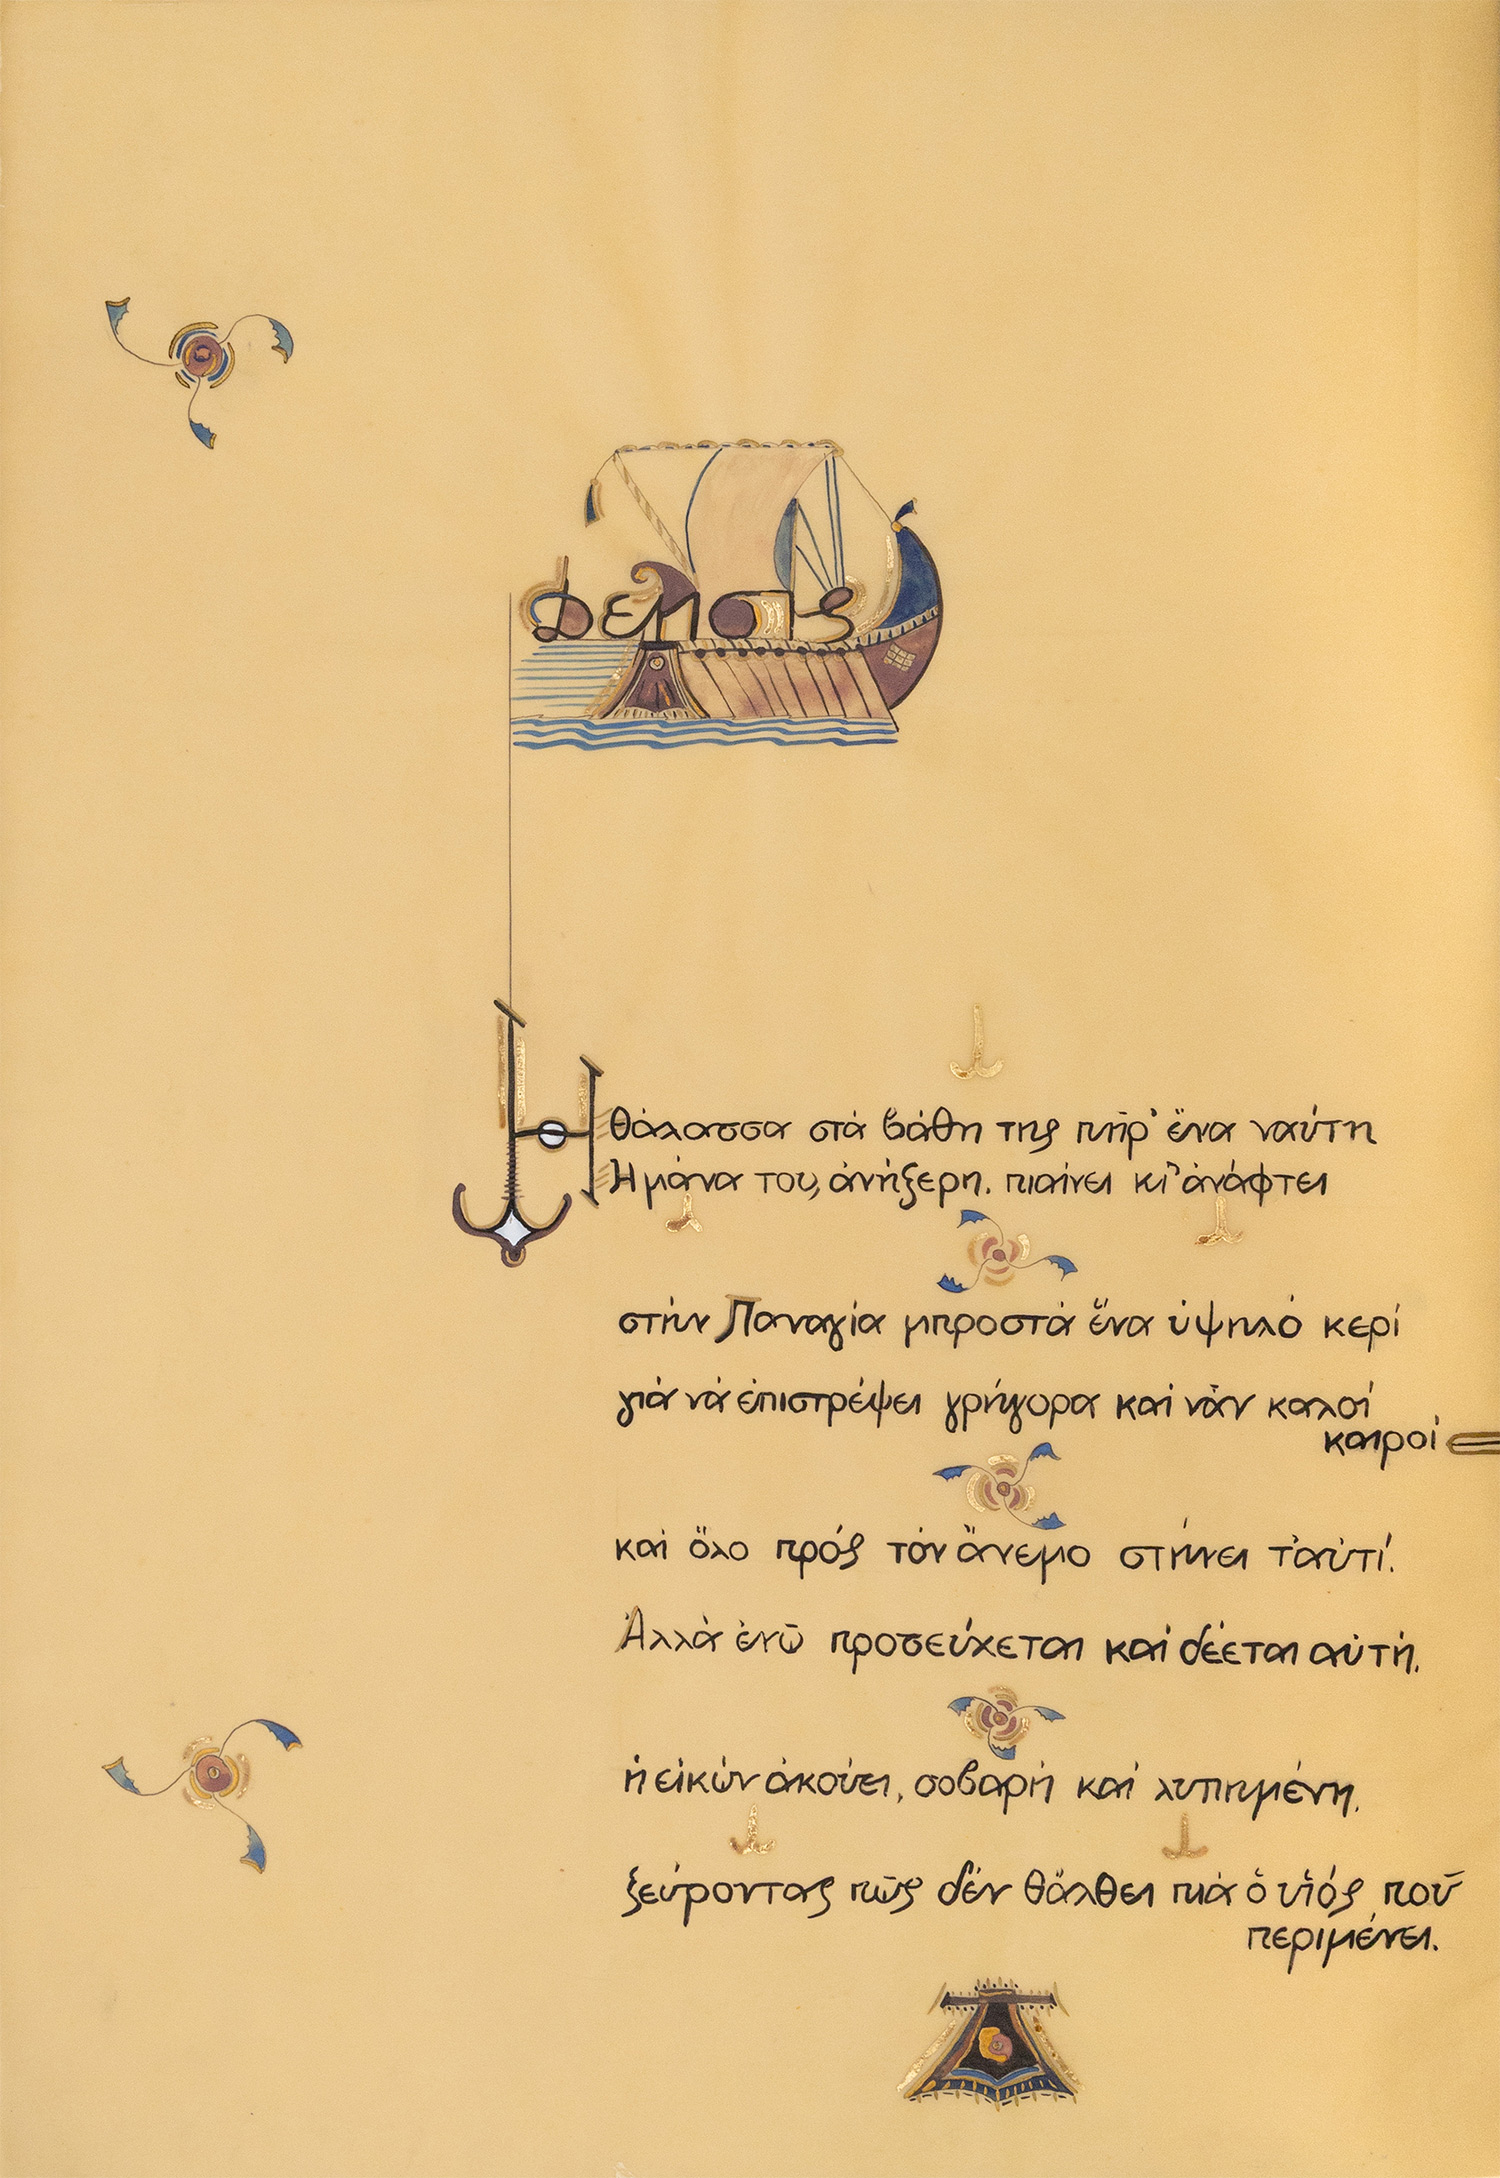 ΔΕΗΣΙΣ
Η θάλασσα στά βάθη της πῆρ' ἕνα ναύτη
Ἡ μάνα του, ἀνήξερη, πιαίνει κι' ἀνάφτει
στήν Παναγία μπροστά ἕνα ὑψηλό κερί
γιά νά ἐπιστρέψει γρήγορα καί νἆν καλοί
καιροί
καί ὅλο πρός τόν ἄνεμο στήνει τ'αὐτί.
Ἀλλά ἐνῶ προσεύχεται καί δέεται αὐτή,
ἡ εἰκών ἀκούει, σοβαρή καί λυπημένη,
ξεύροντας πῶς δέν θἄλθει πιά ὁ υἱός πού
περιμένει.